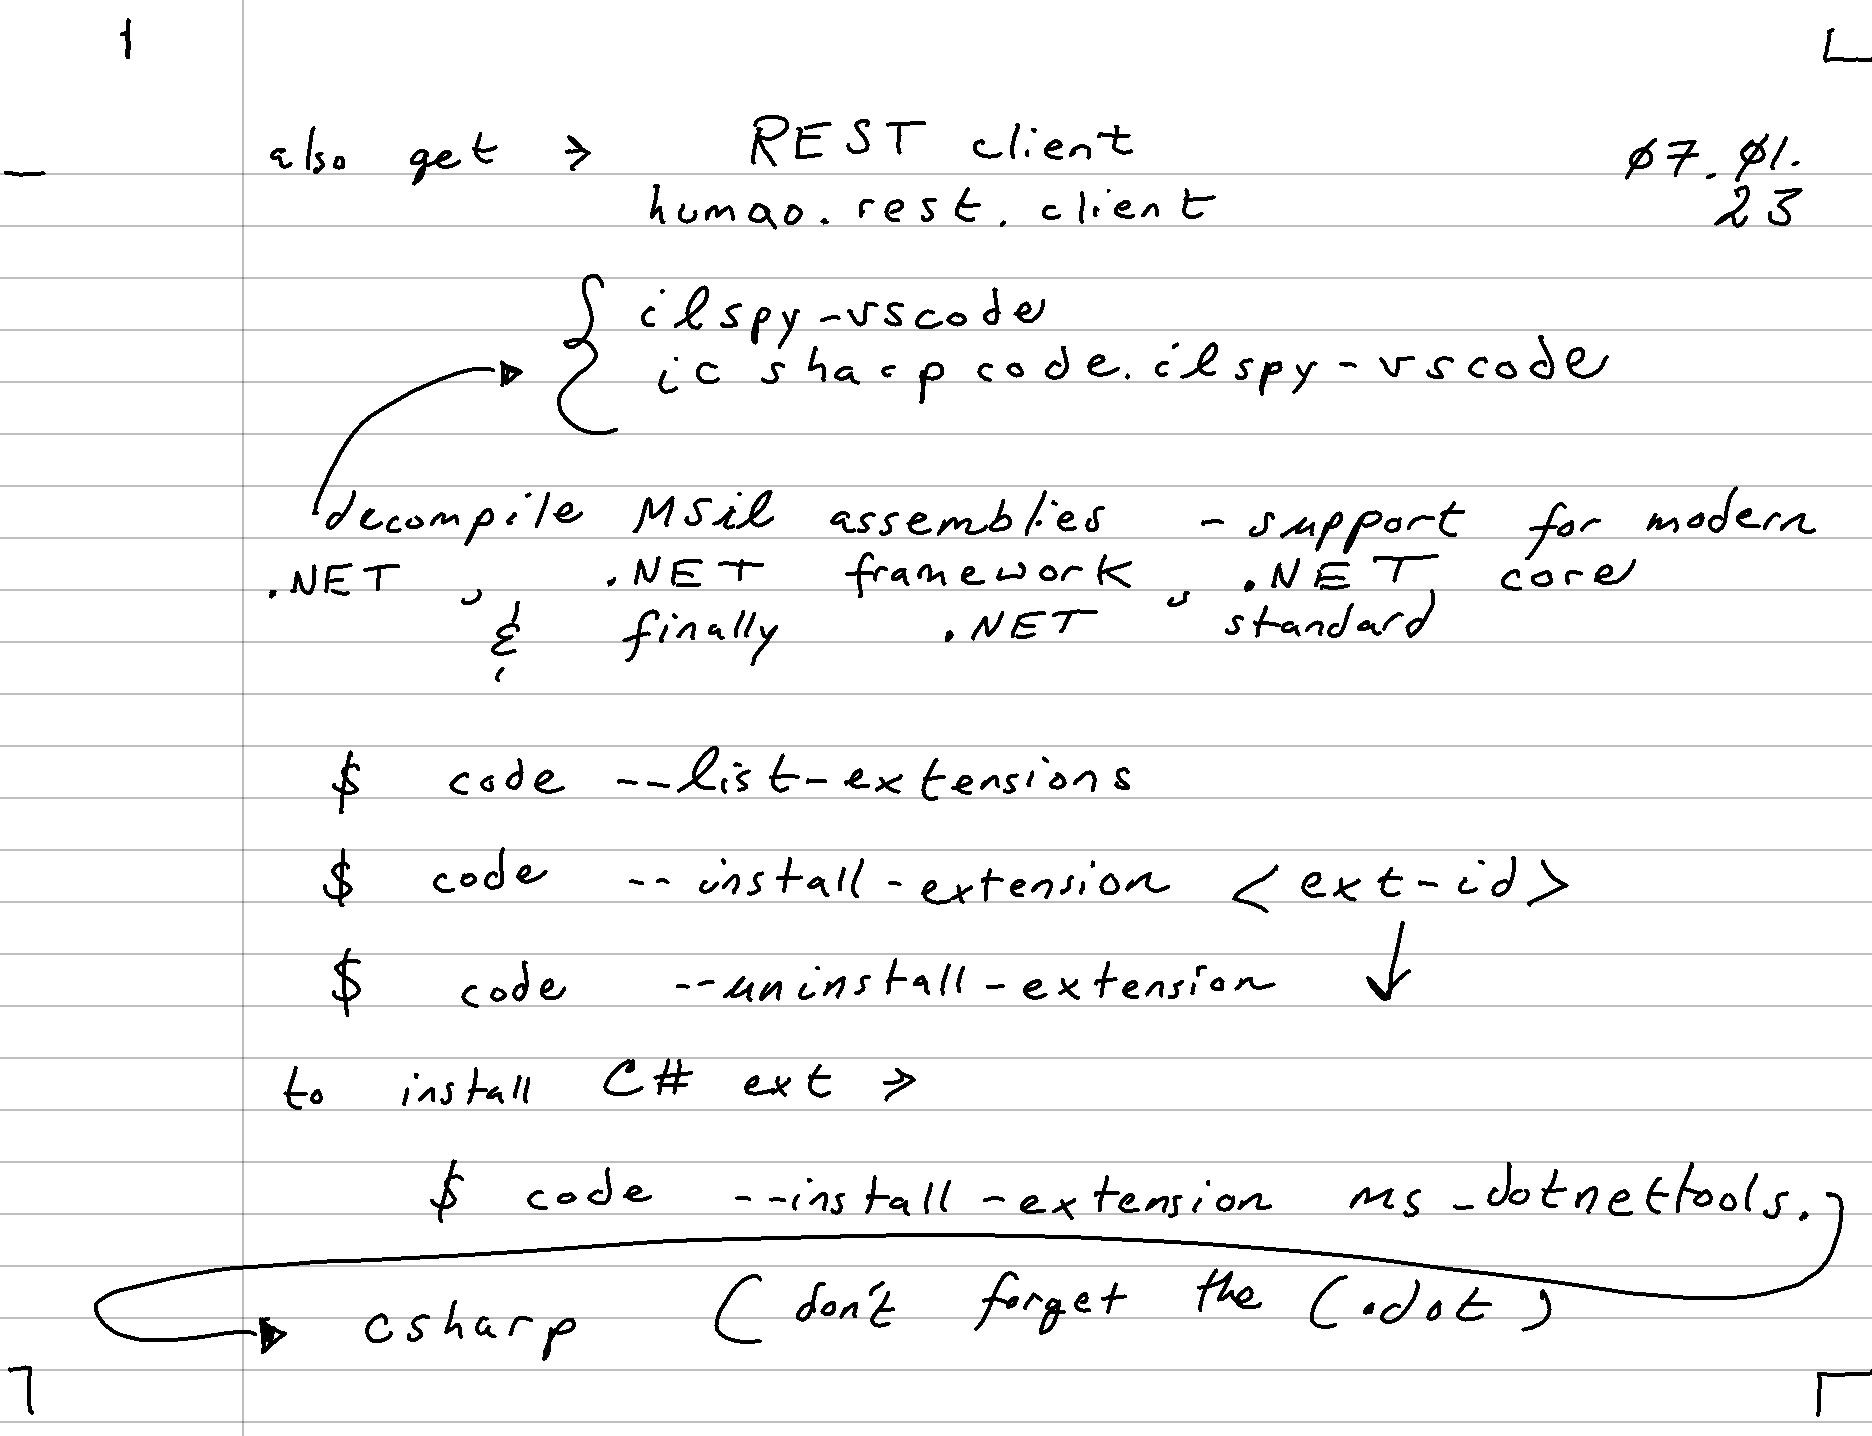 1
also get → REST client
07.01.
humao.rest.client
23
ilspy-vscode
icsharpcode.ilspy-vscode
decompile MSil assemblies - support for modern
.NET, .NET framework, .NET core
& finally .NET standard
$ code --list-extensions
$ code --install-extension <ext-id>
$ code --uninstall-extension ↓
to install C# ext →
$ code --install-extension ms-dotnettools.
csharp (don't forget the (.dot)